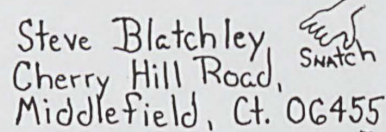 Steve Blatchley,
SNatch
Cherry Hill Road,
Middlefield, Ct. 06455